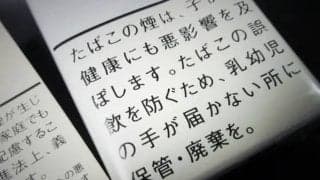 たばこの煙は、子が
健康にも悪影響を及
ぼします。たばこの誤
飲を防ぐため、乳幼児
の手が届かない所に
保管・廃棄を。
が生じ
家庭でも
配慮するこ
進法上、義